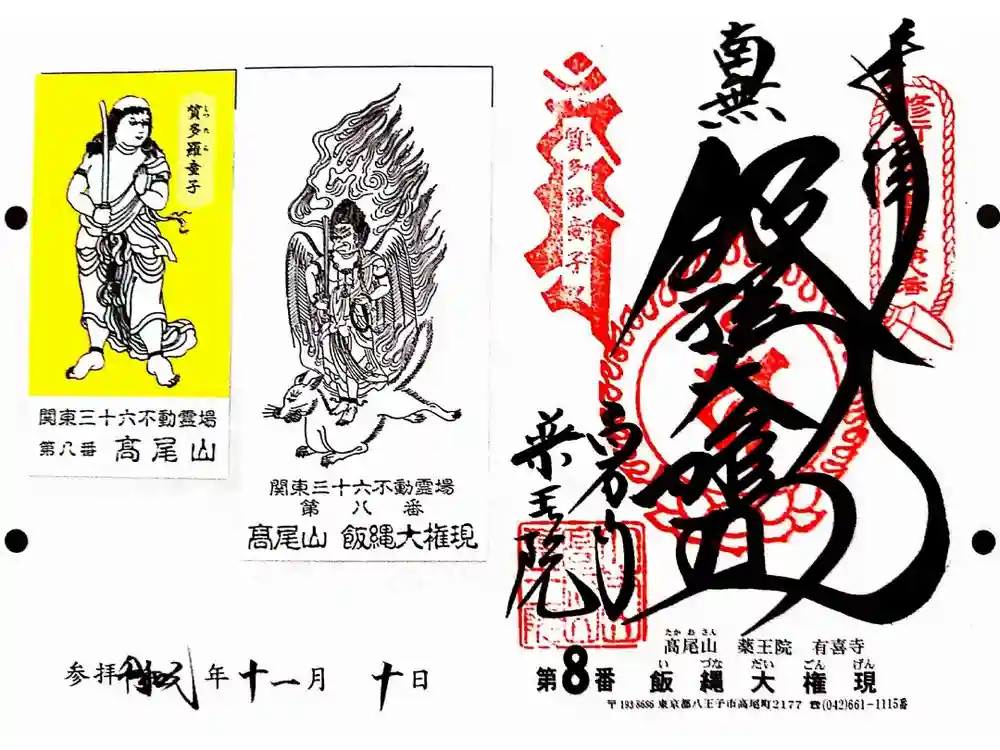 質多羅童子
しつたら
関東三十六不動霊場
第八番 髙尾山
関東三十六不動霊場
第八番
髙尾山 飯縄大権現
参拝 令和元年 十一月 十日
奉拝
南無
飯縄大権現
質多羅童子
高尾山
薬王院
たかおさん
髙尾山 薬王院 有喜寺
いづなだいごんげん
第8番 飯縄大権現
〒193-8686 東京都八王子市高尾町2177 ☎(042)661-1115番